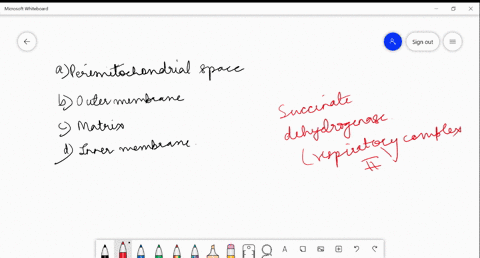 Microsoft Whiteboard
Sign out
a) Perimitochondrial space
b) Outer membrane
c) Matrix
d) Inner membrane.
Succinate
dehydrogenase
(respiratory complex
II